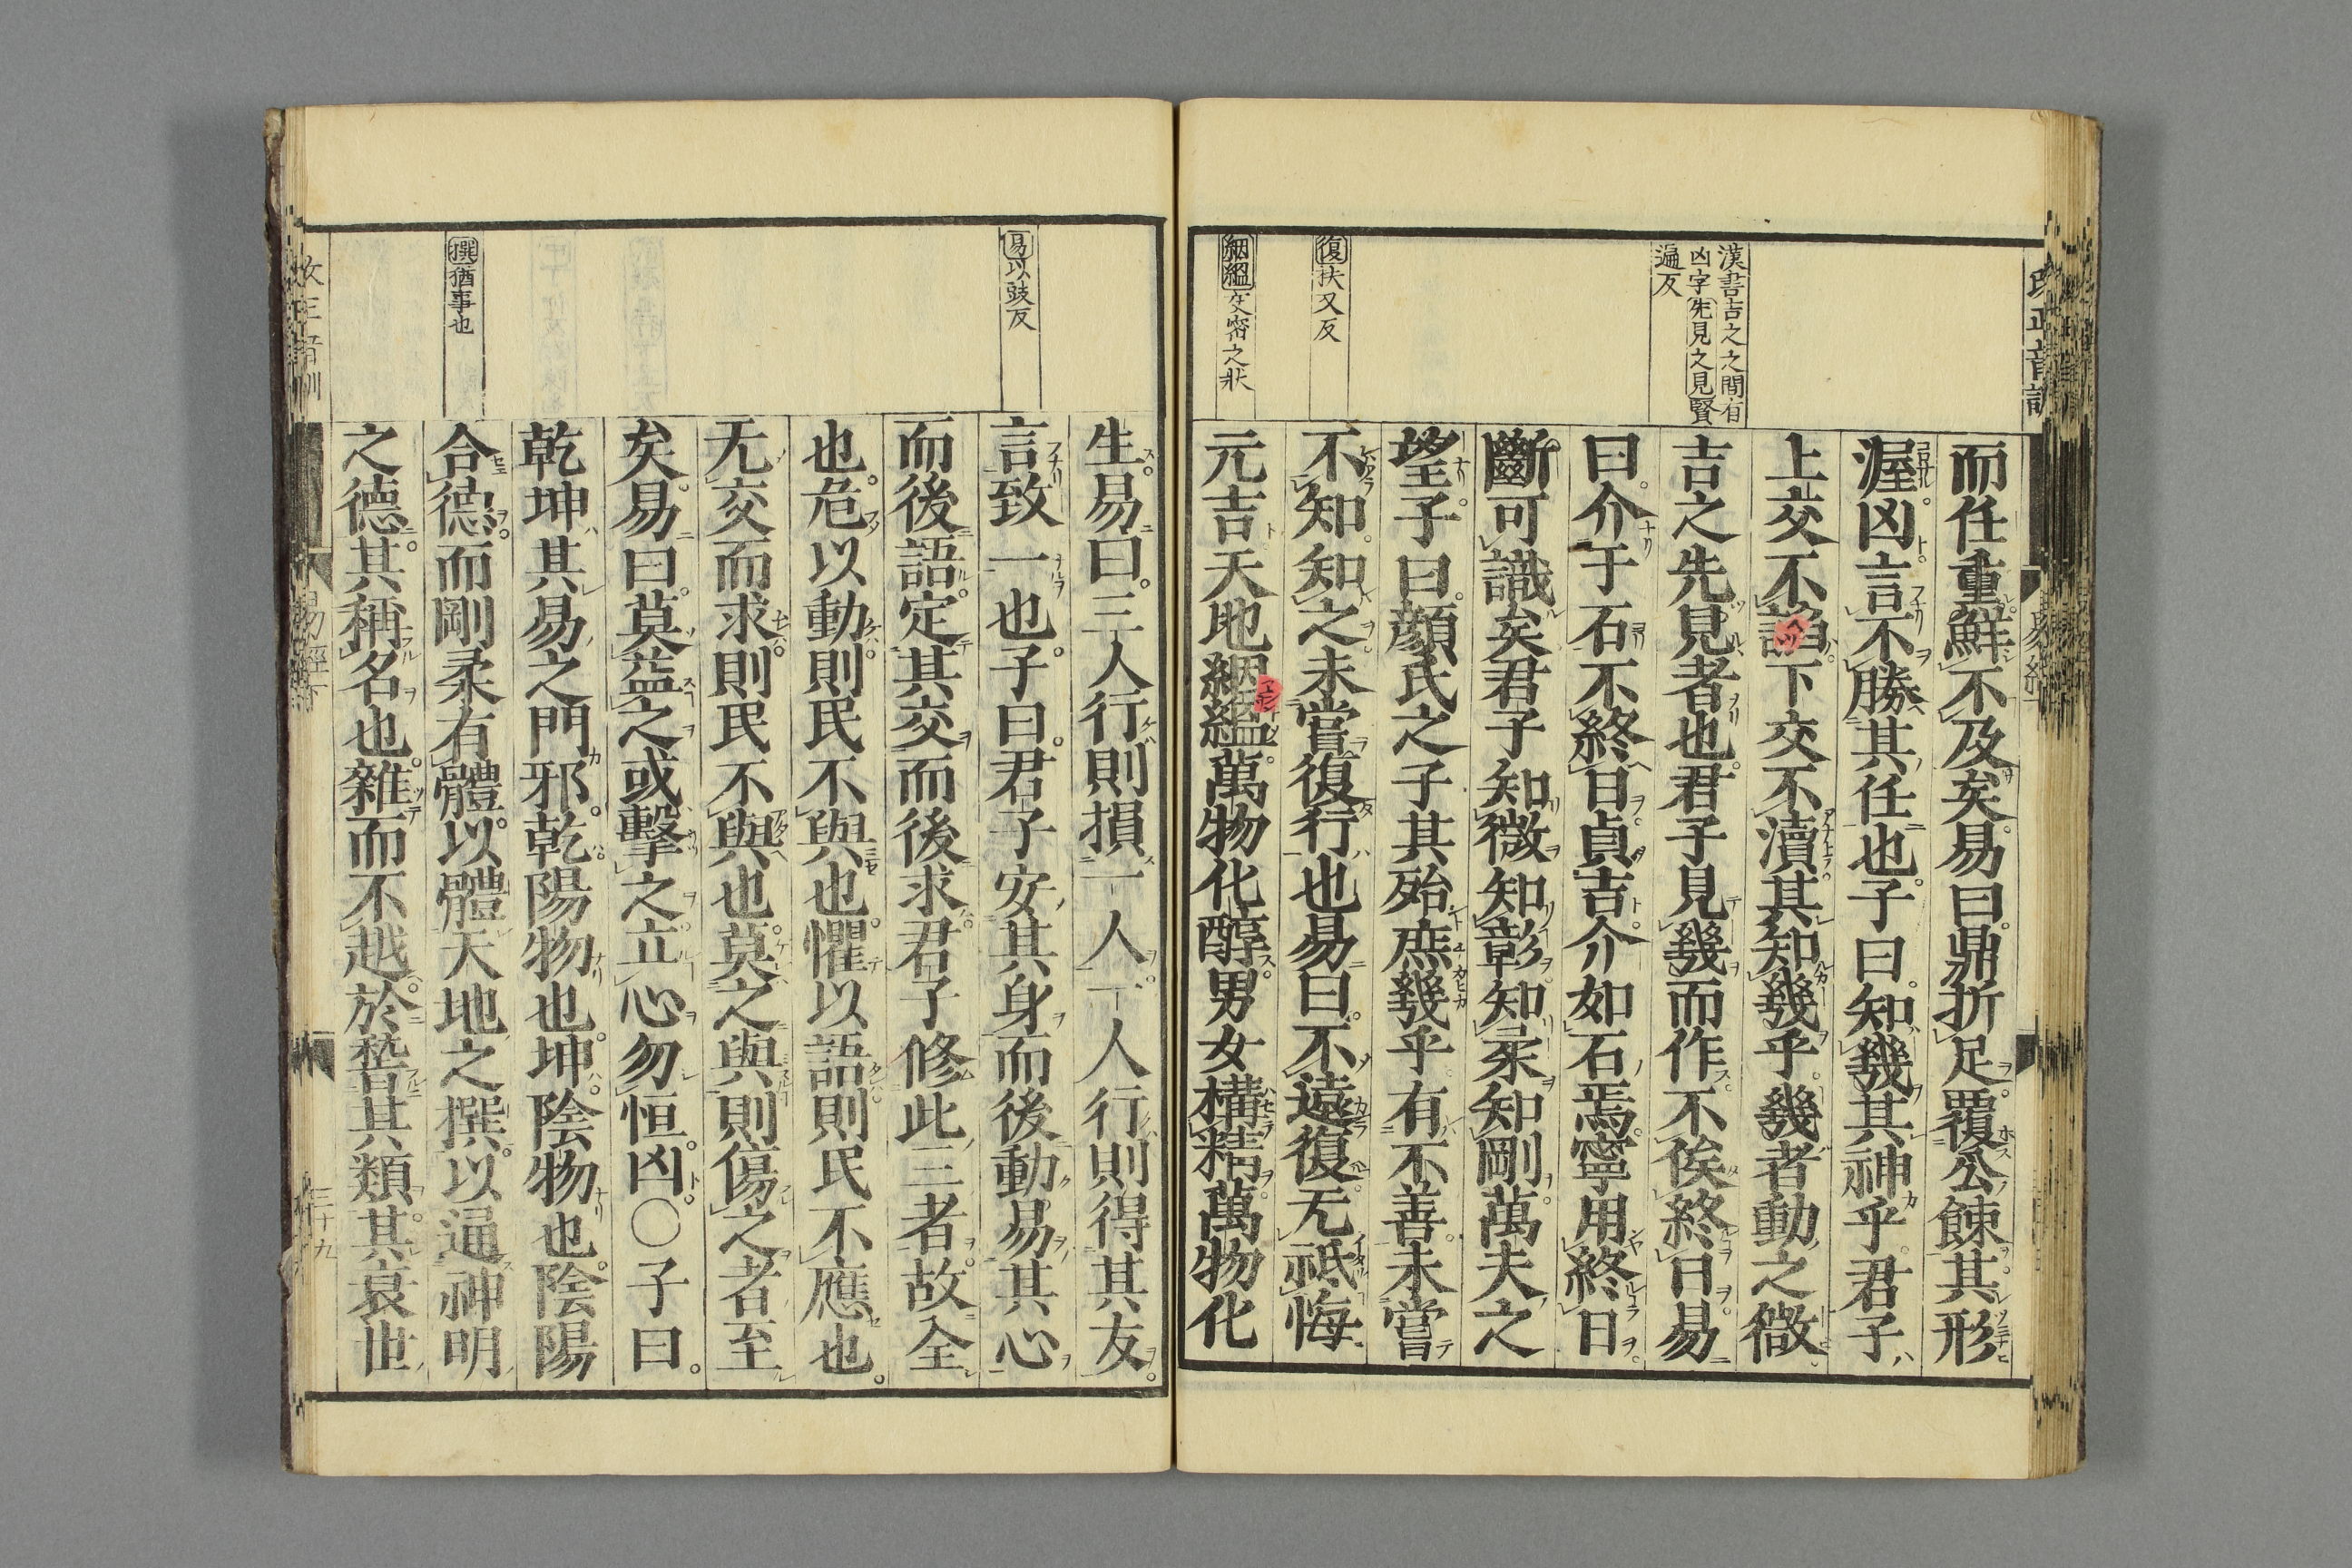 漢書吉之之間有
凶字先見之見賢
遍反
復扶又反
絪縕交密之狀
而任重鮮不及矣易曰鼎折足覆公餗其形
渥凶言不勝其任也子曰知幾其神乎君子
上交不諂下交不瀆其知幾乎幾者動之微
吉之先見者也君子見幾而作不俟終日易
曰介于石不終日貞吉介如石焉寧用終日
斷可識矣君子知微知彰知柔知剛萬夫之
望子曰顏氏之子其殆庶幾乎有不善未嘗
不知知之未嘗復行也易曰不遠復无祗悔
元吉天地絪縕萬物化醇男女構精萬物化
易以豉反
撰猶事也
生易曰三人行則損一人一人行則得其友
言致一也子曰君子安其身而後動易其心
而後語定其交而後求君子修此三者故全
也危以動則民不與也懼以語則民不應也
无交而求則民不與也莫之與則傷之者至
矣易曰莫益之或擊之立心勿恒凶〇子曰
乾坤其易之門邪乾陽物也坤陰物也陰陽
合德而剛柔有體以體天地之撰以通神明
之德其稱名也雜而不越於稽其類其衰世
易經下
三十九